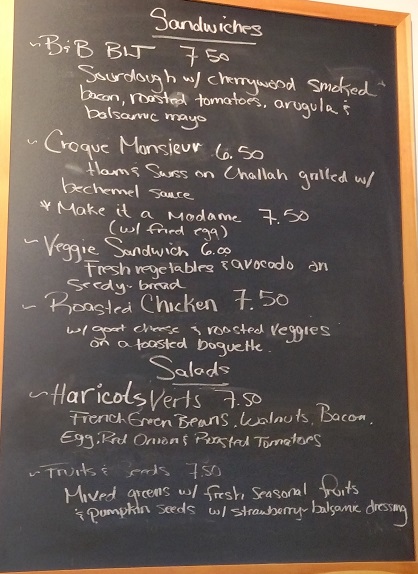 Sandwiches
~ B&B BLT 7.50
Sourdough w/ cherrywood smoked
bacon, roasted tomatoes, arugula &
balsamic mayo
~ Croque Monsieur 6.50
Ham & Swiss on Challah grilled w/
bechemel sauce
* Make it a Madame 7.50
(w/ fried egg)
~ Veggie Sandwich 6.00
Fresh vegetables & avocado on
Seedy-bread
~ Roasted Chicken 7.50
w/ goat cheese & roasted veggies
on a toasted baguette.
Salads
~ Haricots Verts 7.50
French Green Beans, Walnuts, Bacon,
Egg, Red Onion & Roasted Tomatoes
~ Fruits & Seeds 7.50
Mixed greens w/ fresh, seasonal fruits
& pumpkin seeds w/ strawberry-balsamic dressing